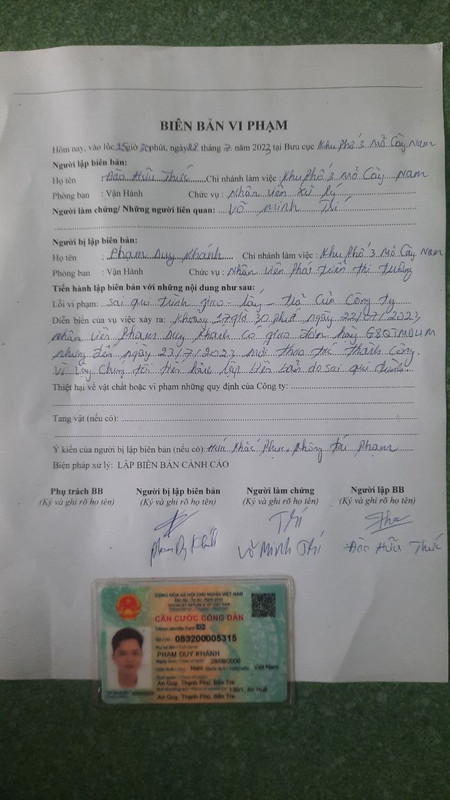 BIÊN BẢN VI PHẠM
Hôm nay, vào lúc 15giờ 30phút, ngày 28 tháng 7 năm 2023 tại Bưu cục Khu phố 3 Mỏ Cày Nam
Người lập biên bản:
Họ tên : Đào Hữu Thức Chi nhánh làm việc : Khu phố 3 Mỏ Cày Nam
Phòng ban : Vận Hành Chức vụ : Nhân viên xử lý
Người làm chứng/ Những người liên quan: Võ Minh Trí
Người bị lập biên bản:
Họ tên : Phạm Duy Khánh Chi nhánh làm việc : Khu phố 3 Mỏ Cày Nam
Phòng ban : Vận Hành Chức vụ : Nhân viên Phát triển thị trường
Tiến hành lập biên bản với những nội dung như sau:
Lỗi vi phạm: Sai qui trình giao - lấy - trả của Công ty
Diễn biến của vụ việc xảy ra: Khoảng 17 giờ 30 phút ngày 22/07/2023
nhân viên Phạm Duy Khánh có giao đơn hàng G8QTMD4M
nhưng đến ngày 23/7/2023 mới thao tác thành công.
Vì vậy chúng tôi tiến hành lập biên bản do sai qui
Thiệt hại về vật chất hoặc vi phạm những quy định của Công ty:
Tang vật (nếu có):
Ý kiến của người bị lập biên bản (nếu có) Hứa khắc phục, không tái phạm
Biện pháp xử lý: LẬP BIÊN BẢN CẢNH CÁO
Phụ trách BB Người bị lập biên bản Người làm chứng Người lập BB
(Ký và ghi rõ họ tên) (Ký và ghi rõ họ tên) (Ký và ghi rõ họ tên) (Ký và ghi rõ họ tên)
Trí
Võ Minh Trí Đào Hữu Thức
CỘNG HÒA XÃ HỘI CHỦ NGHĨA VIỆT NAM
Độc lập - Tự do - Hạnh phúc
CĂN CƯỚC CÔNG DÂN
083200005315
PHẠM DUY KHÁNH
Nam Việt Nam
An Quy, Thạnh Phú, Bến Tre
An Quy, Thạnh Phú, Bến Tre